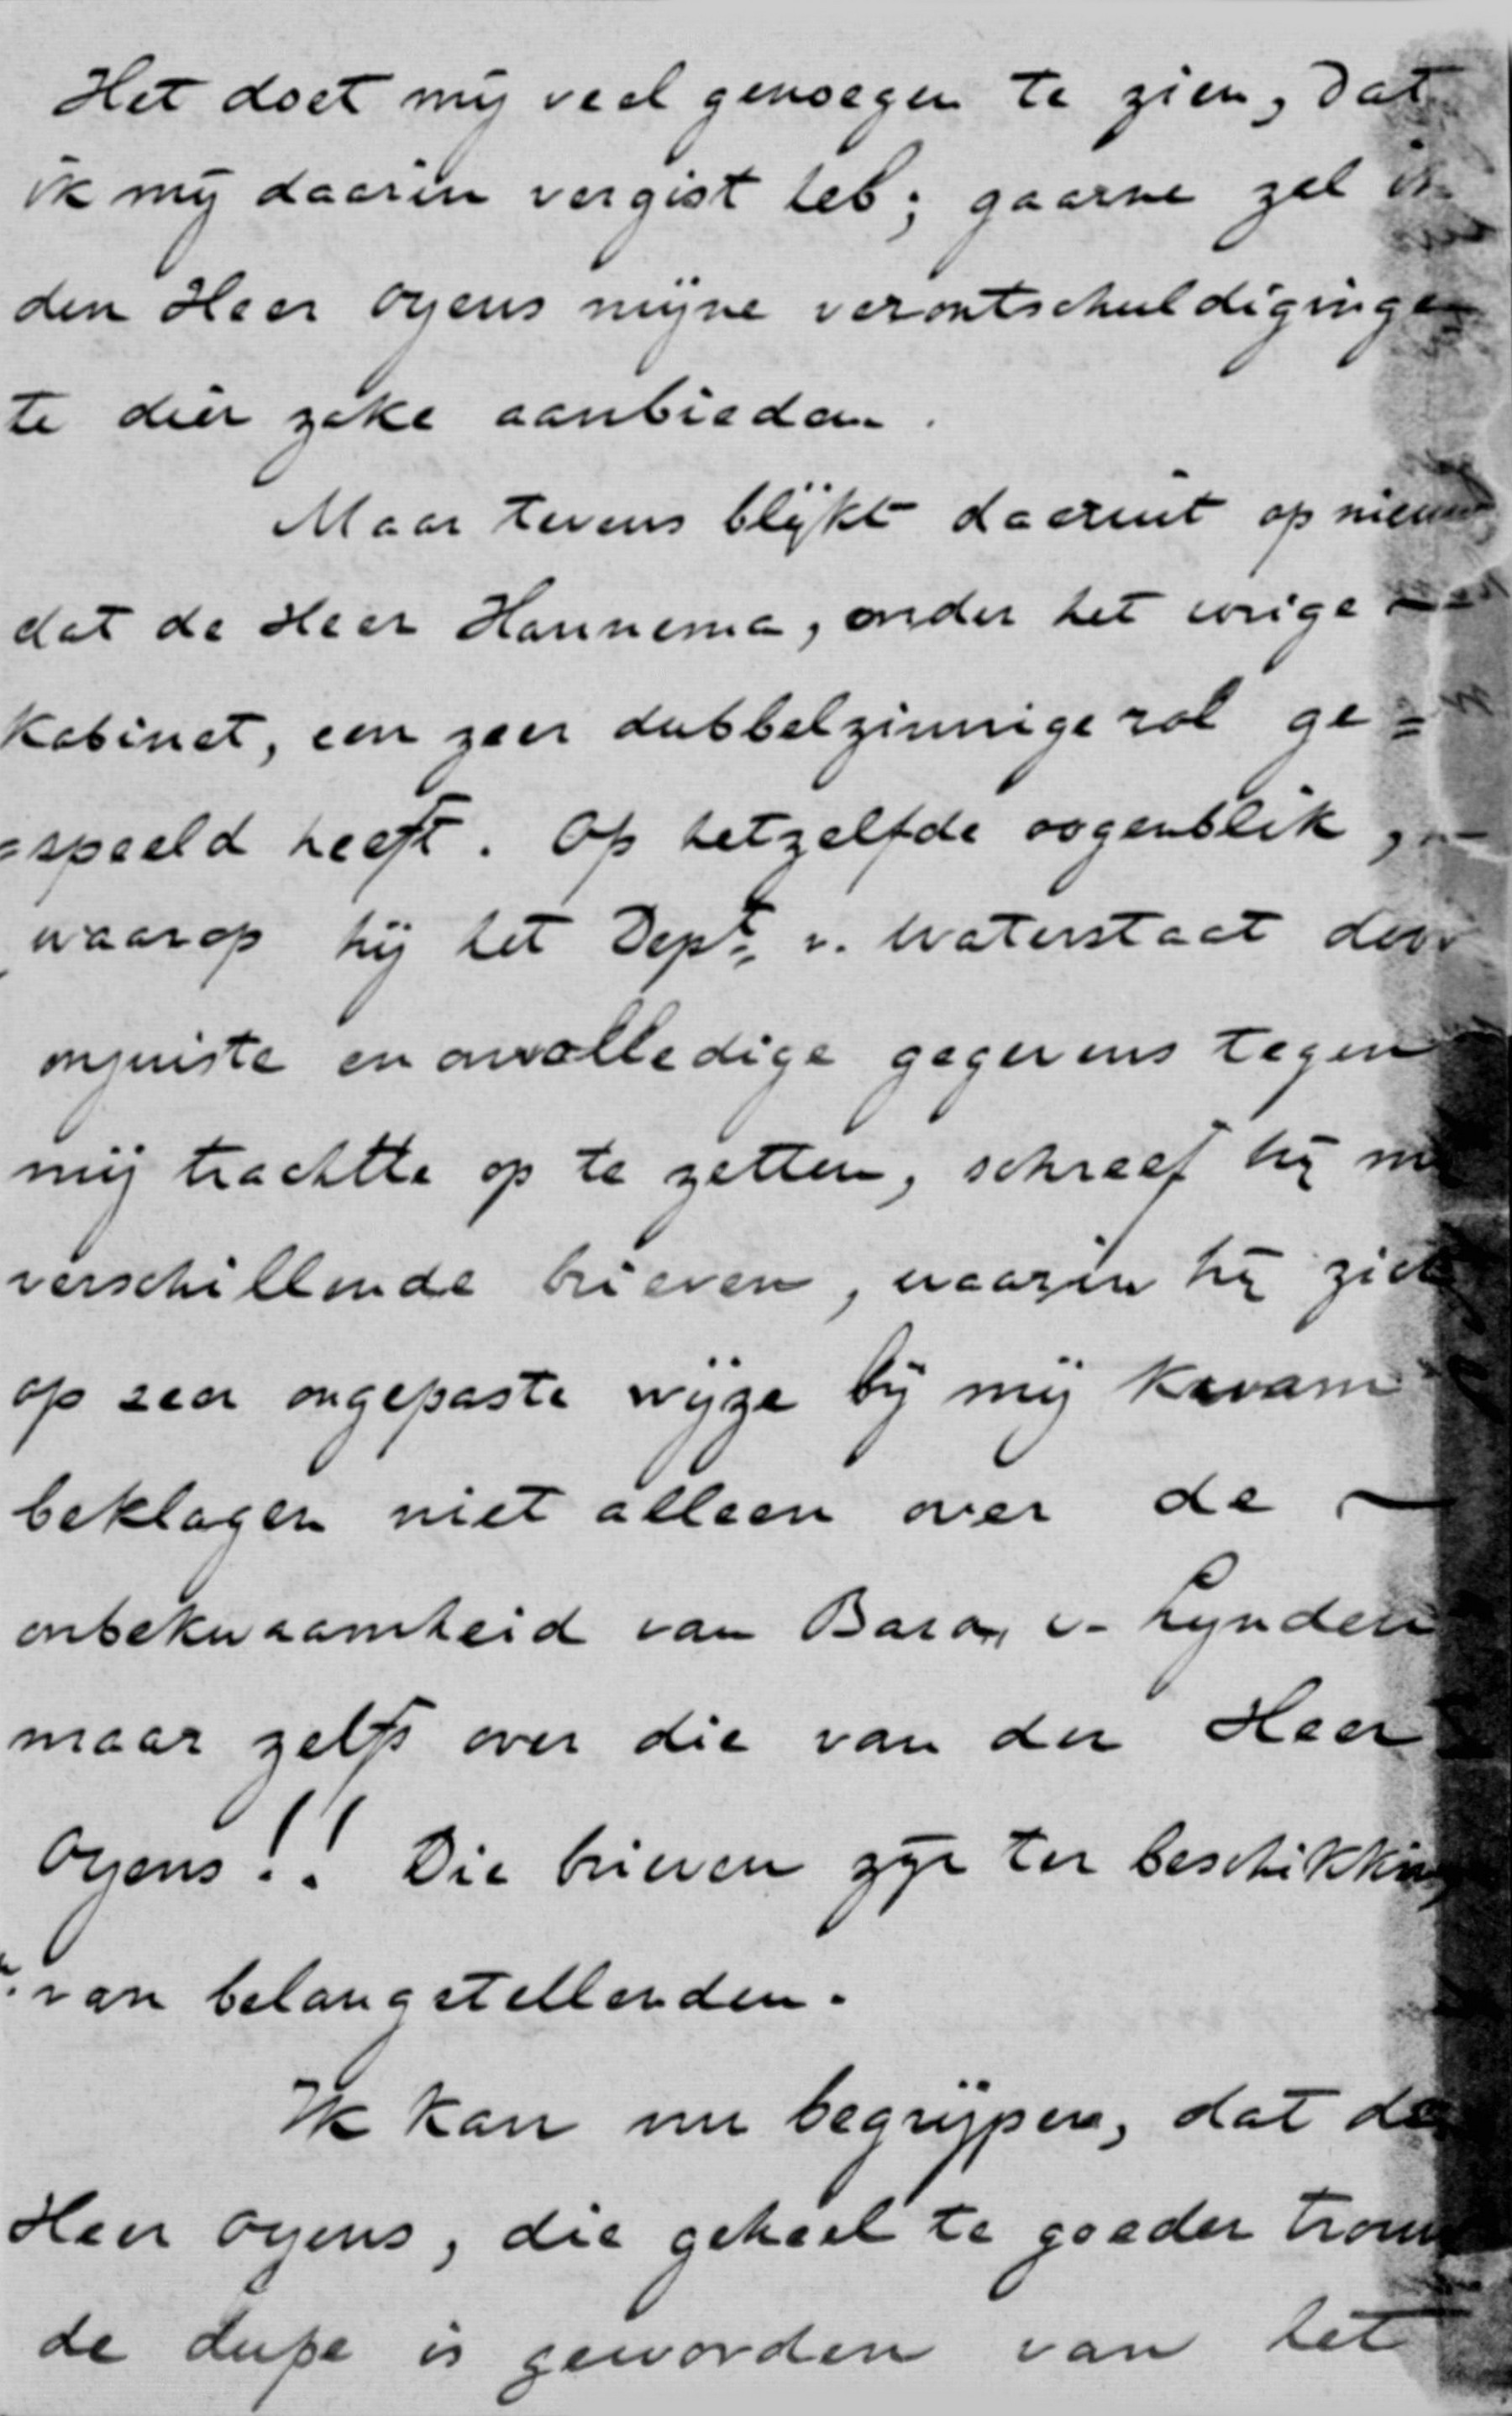 Het doet mij veel genoegen te zien, dat
ik mij daarin vergist heb; gaarne zal ik
den Heer Oyens mijne verontschuldigingen
te dier zake aanbieden.
Maar tevens blijkt daaruit op nieuw
dat de Heer Hannema, onder het vorige
Kabinet, een zeer dubbelzinnige rol ge=
=speeld heeft. Op hetzelfde oogenblik,
waarop hij het Dept. v. Waterstaat door
onjuiste en onvolledige gegevens tegen
mij trachtte op te zetten, schreef hij mij
verschillende brieven, waarin hij zich
op zeer ongepaste wijze bij mij kwam
beklagen niet alleen over de
onbekwaamheid van Baron v. Lynden
maar zelfs over die van den Heer
Oyens!! Die brieven zijn ter beschikking
van belangstellenden.
Ik kan nu begrijpen, dat de
Heer Oyens, die geheel te goeder trouw
de dupe is geworden van het